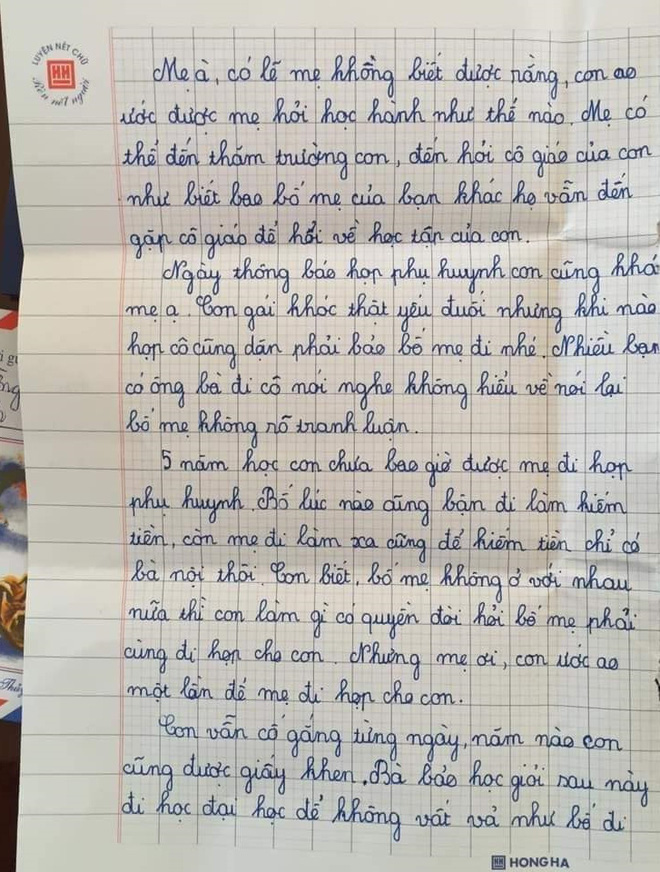 LUYỆN NẾT CHỮ
HH
Rèn nết người
Mẹ à, có lẽ mẹ không biết được rằng, con ao
ước được mẹ hỏi học hành như thế nào. Mẹ có
thể đến thăm trường con, đến hỏi cô giáo của con
như biết bao bố mẹ của bạn khác họ vẫn đến
gặp cô giáo để hỏi về học tập của con.
Ngày thông báo họp phụ huynh con cũng khó
mẹ ạ. Con gái khóc thật yếu đuối nhưng khi nào
họp cô cũng dặn phải bảo bố mẹ đi nhé. Nhiều bạn
có ông bà đi cô nói nghe không hiểu về nói lại
bố mẹ không rõ tranh luận.
5 năm học con chưa bao giờ được mẹ đi họp
phụ huynh. Bố lúc nào cũng bận đi làm kiếm
tiền, còn mẹ đi làm xa cũng để kiếm tiền chỉ có
bà nội thôi. Con biết, bố mẹ không ở với nhau
nữa thì con làm gì có quyền đòi hỏi bố mẹ phải
cùng đi họp cho con. Nhưng mẹ ơi, con ước ao
một lần để mẹ đi họp cho con.
Con vẫn cố gắng từng ngày, năm nào con
cũng được giấy khen. Bà bảo học giỏi sau này
đi học đại học để không vất vả như bố đi
HH HONG HA